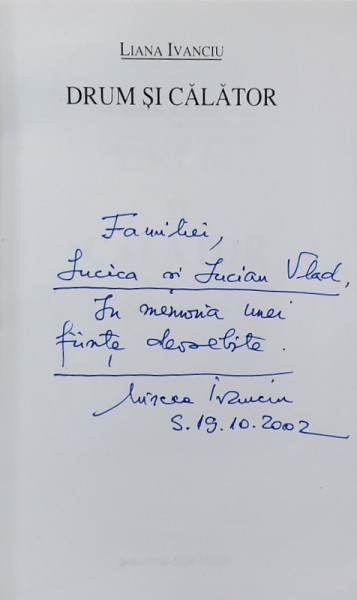 LIANA IVANCIU
DRUM ȘI CĂLĂTOR
Familiei,
Lucica și Lucian Vlad,
În memoria unei
ființe deosebite.
Mircea Ivanciu
S. 19.10.2002